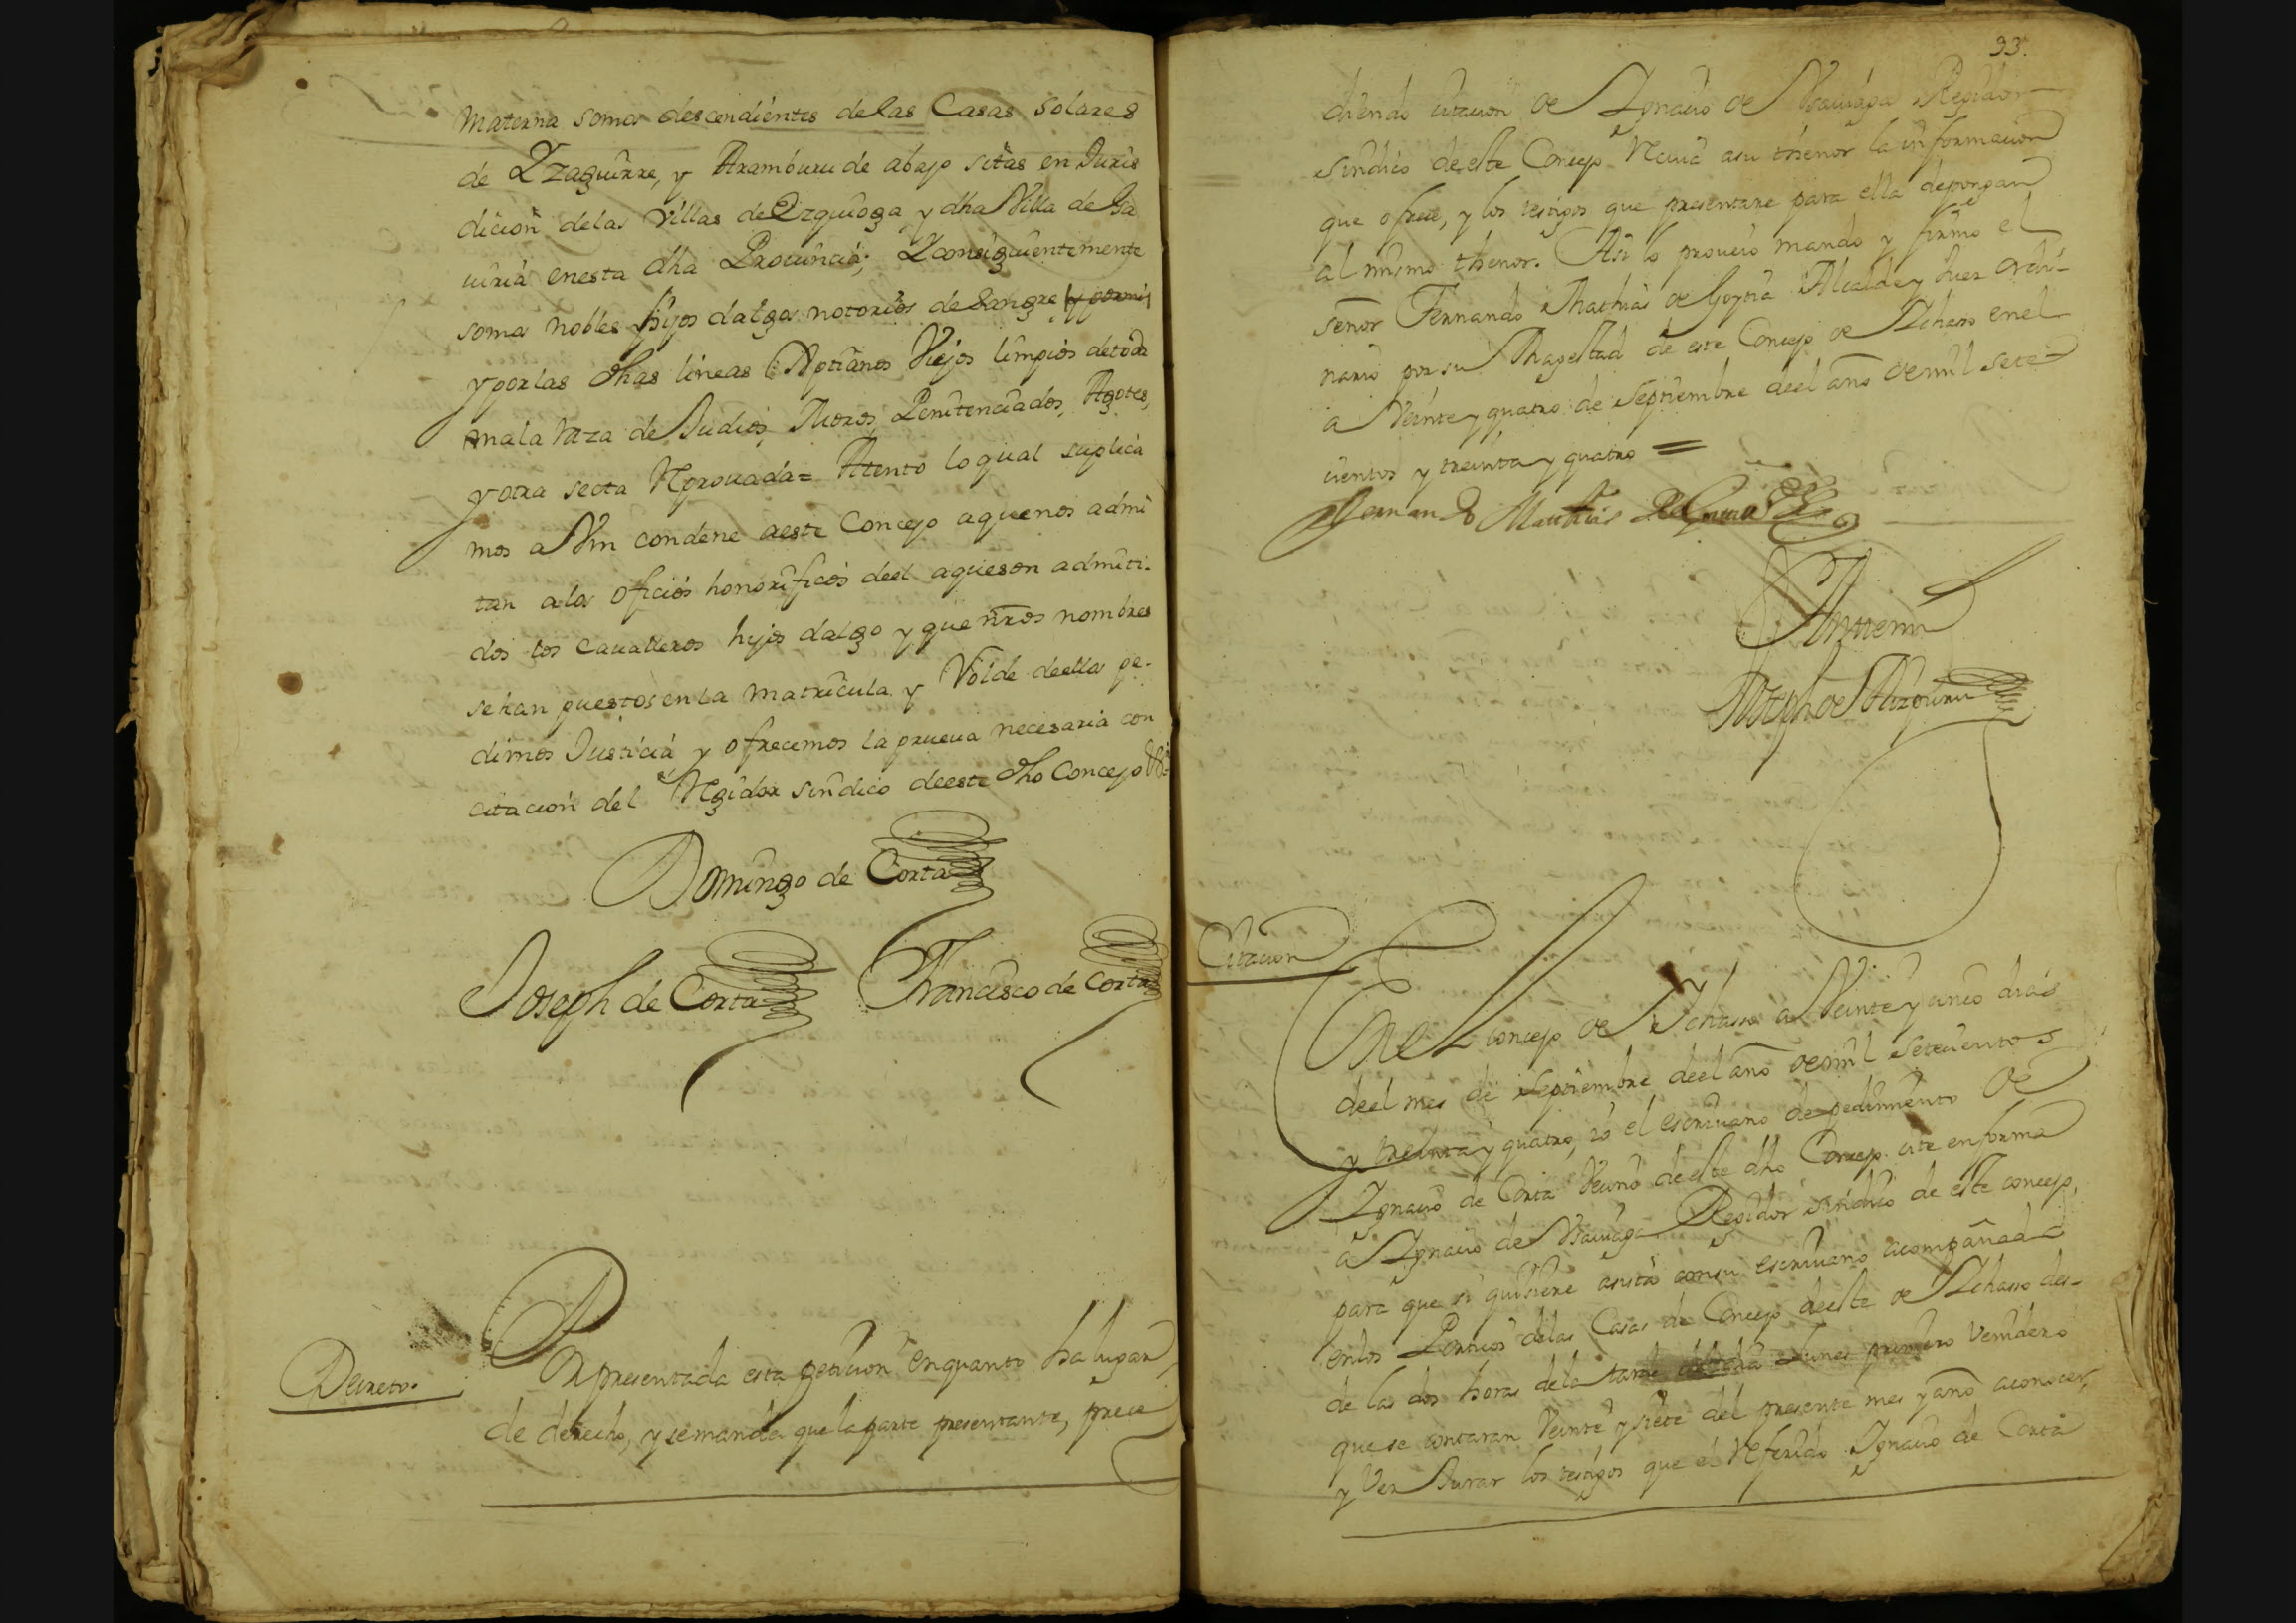 Materna somos descendientes de las Casas solares
de Yzaguirre, y Aramburu de abajo sitas en Juris
dicion delas Villas de Ezquioga y dha Villa de Ga
uiria enesta dha Prouincia; Y consiguientemente
somos nobles hijos dalgo notorios de sangre
y por las dhas lineas Xptianos Viejos limpios de toda
mala raza de Judios, Moros, Penitenciados, Agotes,
y otra secta Reprouada = Atento lo qual suplica
mos a Vm condene aeste Concejo aquenos admi
tan alos oficios honorificos deel aqueson admiti-
dos los Caualleros hijos dalgo y que nros nombres
sehan puestos en la matricula y Rolde deellos pe-
dimos Justicia y ofrecemos la prueua necesaria con
citacion del Regidor sindico deeste dho Concejo
Domingo de Corta
Joseph de Corta Francisco de Corta
Decreto.
Por presentada esta peticion en quanto ha lugar
de derecho, y se manda que la parte presentante, prece
33.
diendo citacion de Ygnacio de Regidor
sindico de este Concejo Reciua asu thenor la informacion
que ofrece, y los testigos que presentare para ella depongan
al mismo thenor. Asi lo proueio mando y firmo el
señor Fernando Mathias de Goytia Alcalde y Juez ordi-
nario por su Magestad de este Concejo de Ychaso enel
a Veinte y quatro de Septiembre deel año de mil sete-
cientos y treinta y quatro =
Fernando Mathias de
Ante mi
Joseph de Aizpuru
Citacion
En el Concejo de Ychasso a Veinte y cinco dias
deel mes de septiembre deel año de mil setecientos
y treinta y quatro, io el escriuano de pedimiento de
Ygnacio de Corta Vecino deeste dho Concejo cite en forma
a Ygnacio de Regidor sindico de este concejo,
para que si quisiere asista con su escriuano acompañado
enlos Porticos delas Casas de Concejo deeste de Ychasso des-
de las dos horas dela tarde Lunes primero Venidero
que se contaran Veinte y siete del presente mes y año aconocer,
y Ver Jurar los testigos que el Referido Ygnacio de Corta